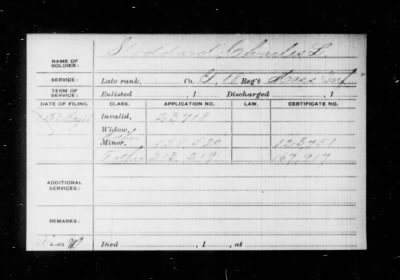 NAME OF SOLDIER: Stoddard, Charles L.
SERVICE: Late rank, Co. Reg't Mass Inf
TERM OF SERVICE: Enlisted , 1 Discharged , 1
DATE OF FILING. CLASS. APPLICATION NO. LAW. CERTIFICATE NO.
Invalid, 23718
Widow,
Minor,
Father 212,219 167,917
ADDITIONAL SERVICES:
REMARKS:
Died , 1 , at